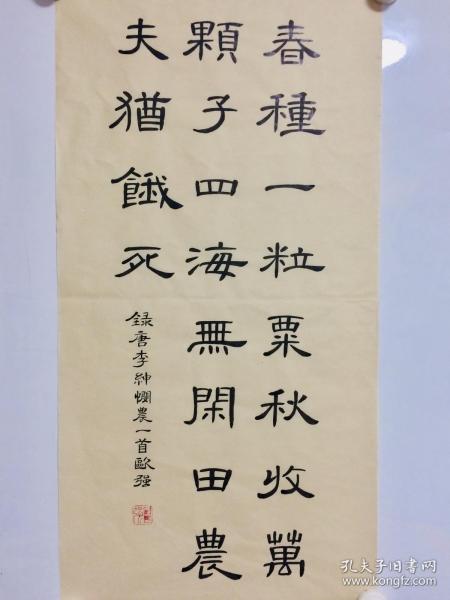 春種一粒粟秋收萬
顆子四海無閑田農
夫猶餓死
録唐李紳憫農一首歐强
孔夫子旧书网
www.kongfz.com